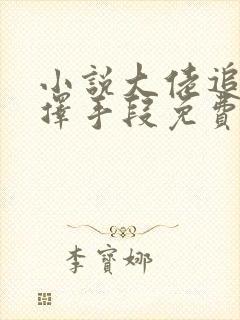 小說大佬追
擇手段免費
李寶娜